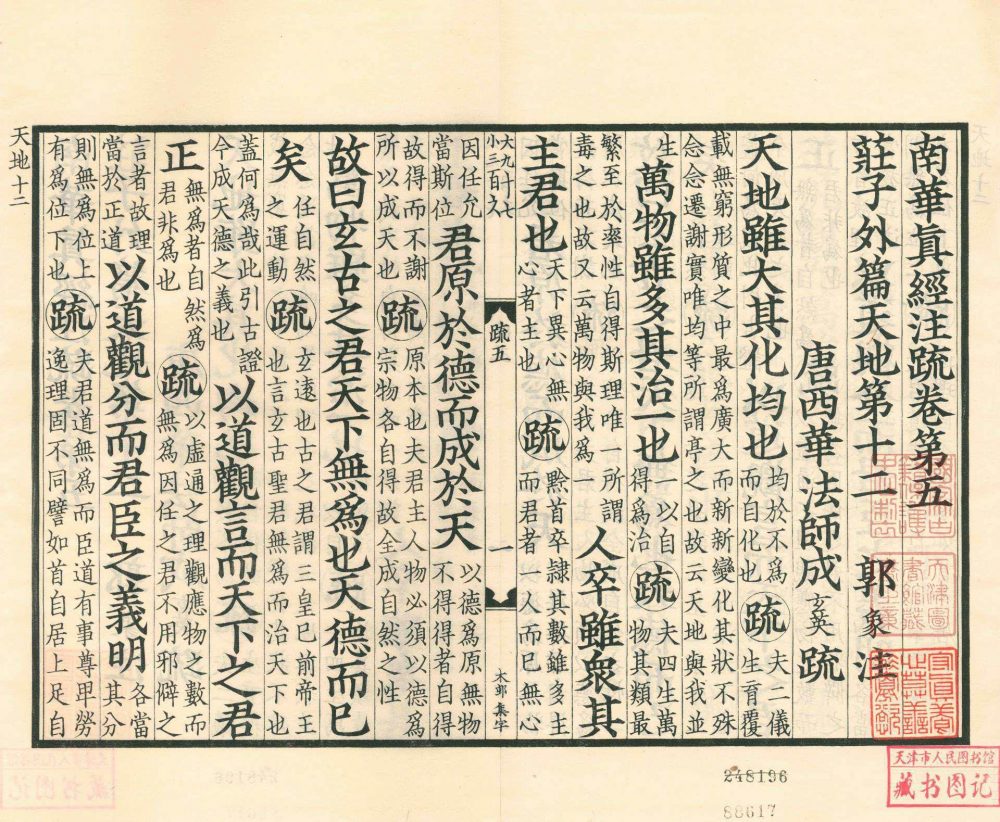 南華眞經注疏卷第五
莊子外篇天地第十二 郭象注
唐西華法師成玄英疏
天地雖大其化均也
均於不爲
而自化也
疏
夫二儀
生育覆
載無窮形質之中最爲廣大而新新變化其狀不殊
念念遷謝實唯均等所謂亭之也故云天地與我並
生
萬物雖多其治一也
一以自
得爲治
疏
夫四生萬
物其類最
繁至於率性自得斯理唯一所謂
毒之也故又云萬物與我爲一
人卒雖衆其
主君也
天下異心無
心者主也
疏
黔首卒隷其數雖多主
而君者一人而巳無心
大九十七
小三百九
疏五
一
木邨集字
因任允
當斯位
君原於德而成於天
以德爲原無物
不得得者自得
故得而不謝
所以成天也
疏
原本也夫君主人物必須以德爲
宗物各自得故全成自然之性
故曰玄古之君天下無爲也天德而巳
矣
任自然
之運動
疏
玄遠也古之君謂三皇巳前帝王
也言玄古聖君無爲而治天下也
蓋何爲哉此引古證
今成天德之義也
以道觀言而天下之君
正
無爲者自然爲
君非爲也
疏
以虛通之理觀應物之數而
無爲因任之君不用邪僻之
言者故理
當於正道
以道觀分而君臣之義明
各當
其分
則無爲位上
有爲位下也
疏
夫君道無爲而臣道有事尊卑勞
逸理固不同譬如首自居上足自
天地十二
天津市人民图书馆
藏书图记
248196
88617